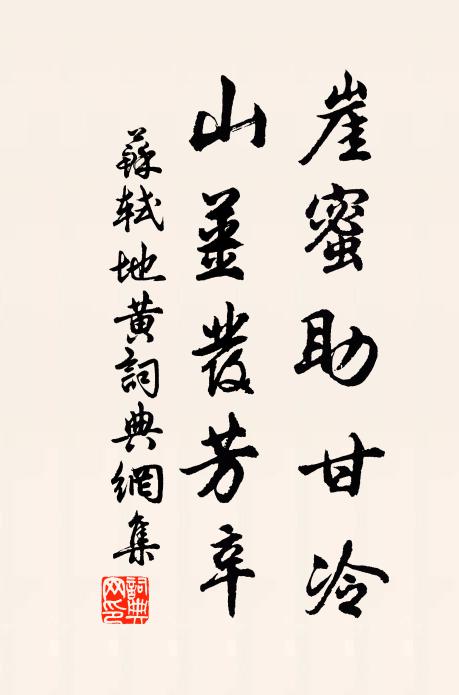 崖蜜助甘冷
山薑發芳辛
蘇軾地黃詞典網集
詞典網印